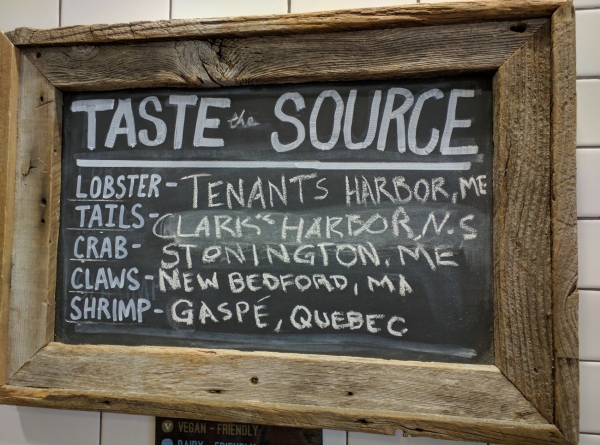 TASTE the SOURCE
LOBSTER - TENANTS HARBOR, ME
TAILS - CLARK'S HARBOR, N.S
CRAB - STONINGTON, ME
CLAWS - NEW BEDFORD, MA
SHRIMP - GASPÉ, QUEBEC
V VEGAN - FRIENDLY
DAIRY - FRIENDLY